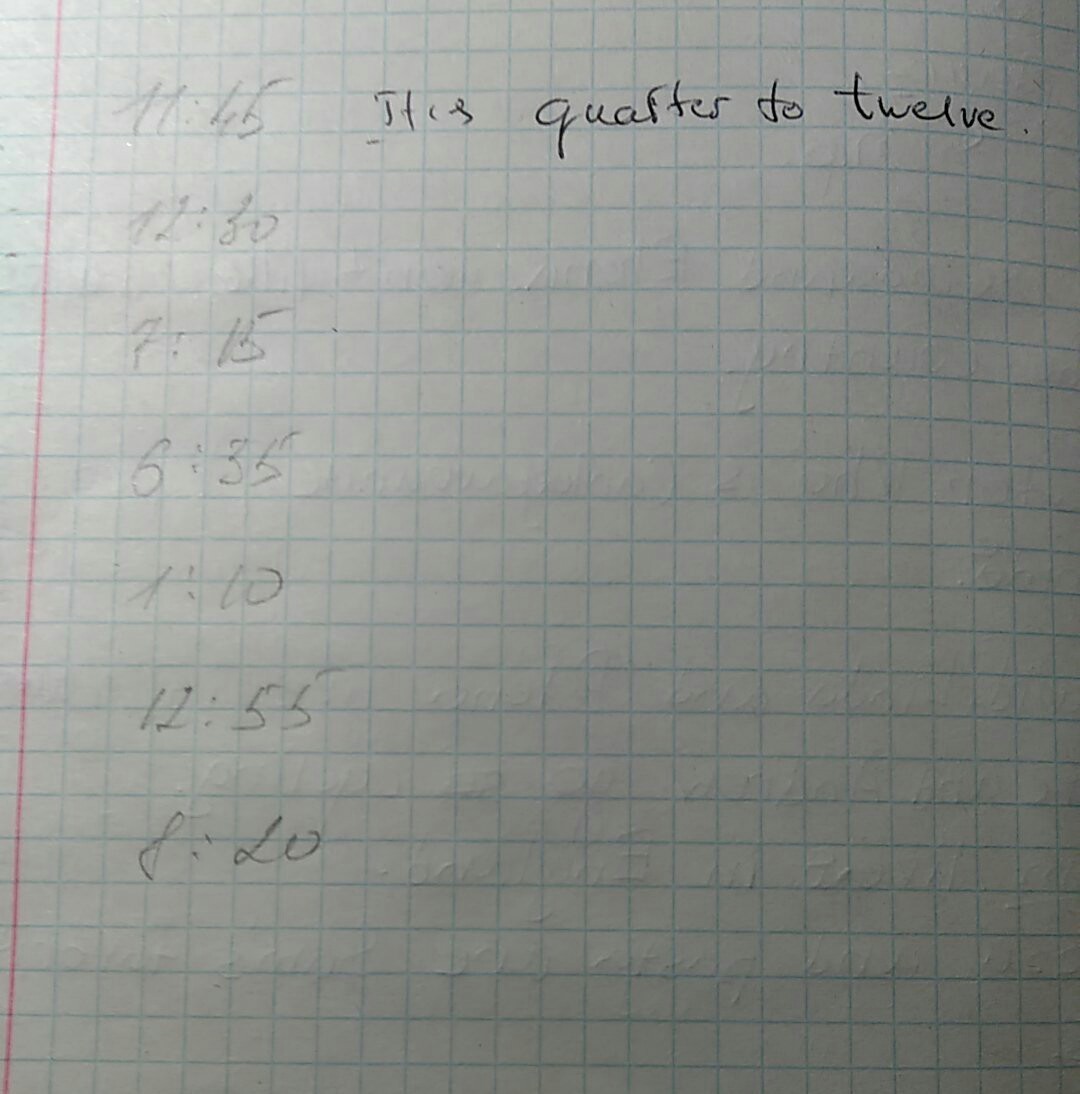 11:45 It is quarter to twelve.
12:30
7:15
6:35
1:10
12:55
8:20